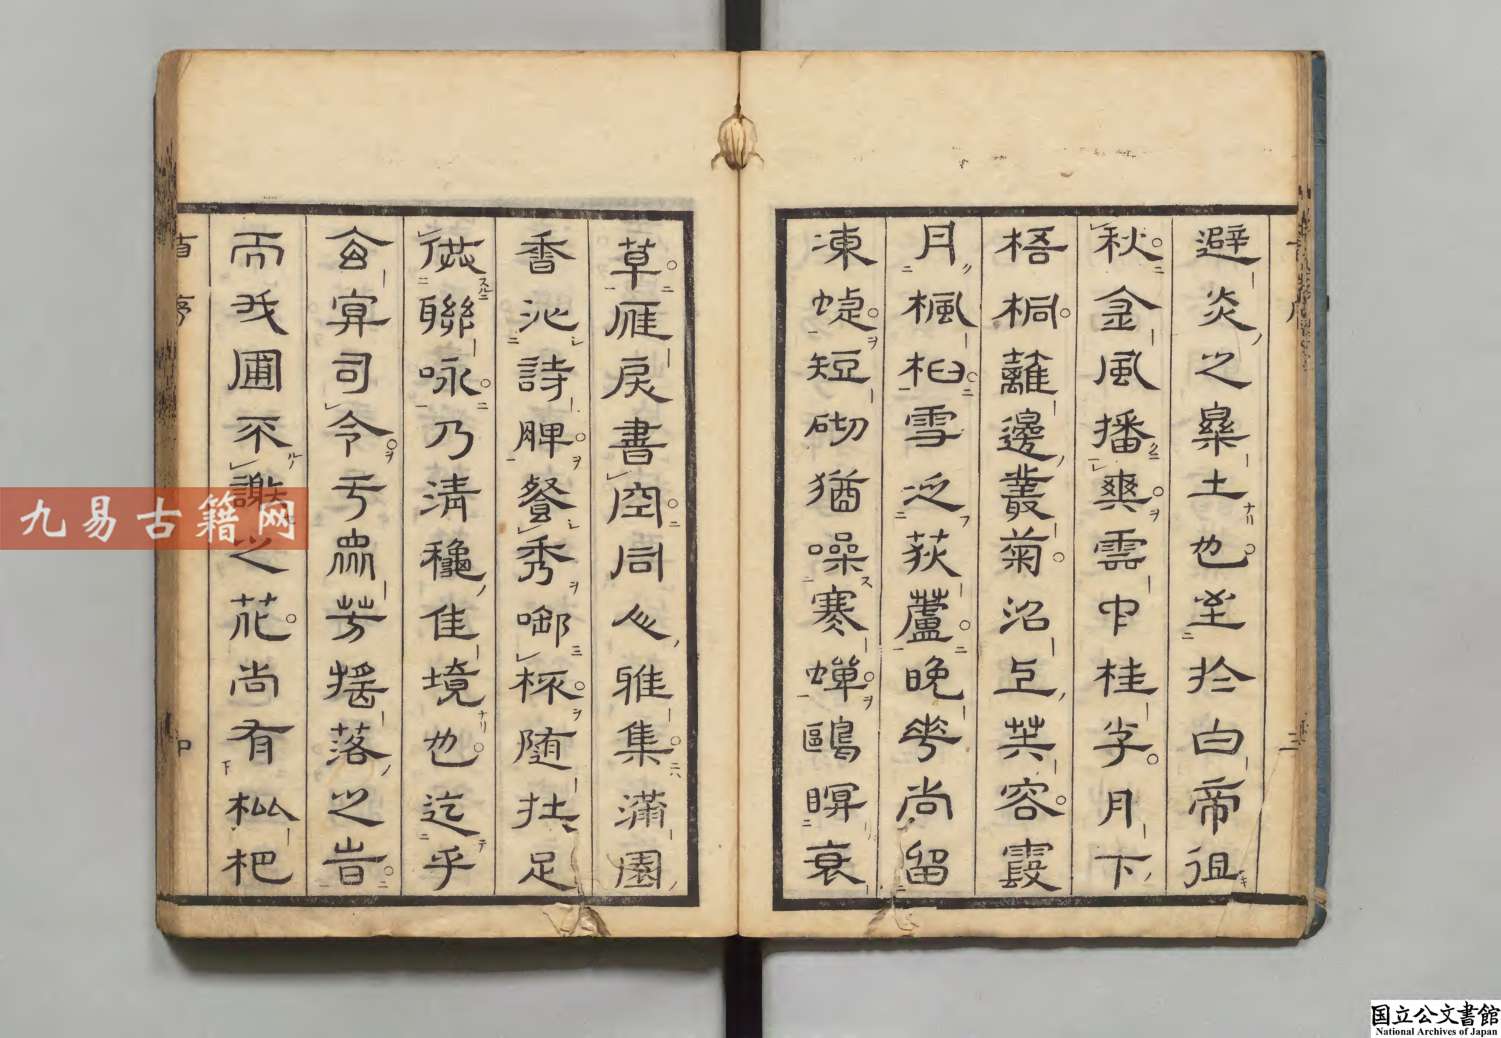 避炎之皋土也至於白帝徂
秋金風播爽雲中桂子月下
梧桐蘺邊叢菊沼上芙容霞
月楓桕雪之荻蘆晩花尚留
凍蜨短砌猶噪寒蟬鷗暝衰
草雁戻書空同心雅集滿園
香沁詩脾餐秀啣杯随在足
供聯咏乃清穐佳境也迄乎
玄冥司令于衆芳揺落之旹
而我圃不謝之花尚有枇杷
首序
九易古籍网
国立公文書館
National Archives of Japan